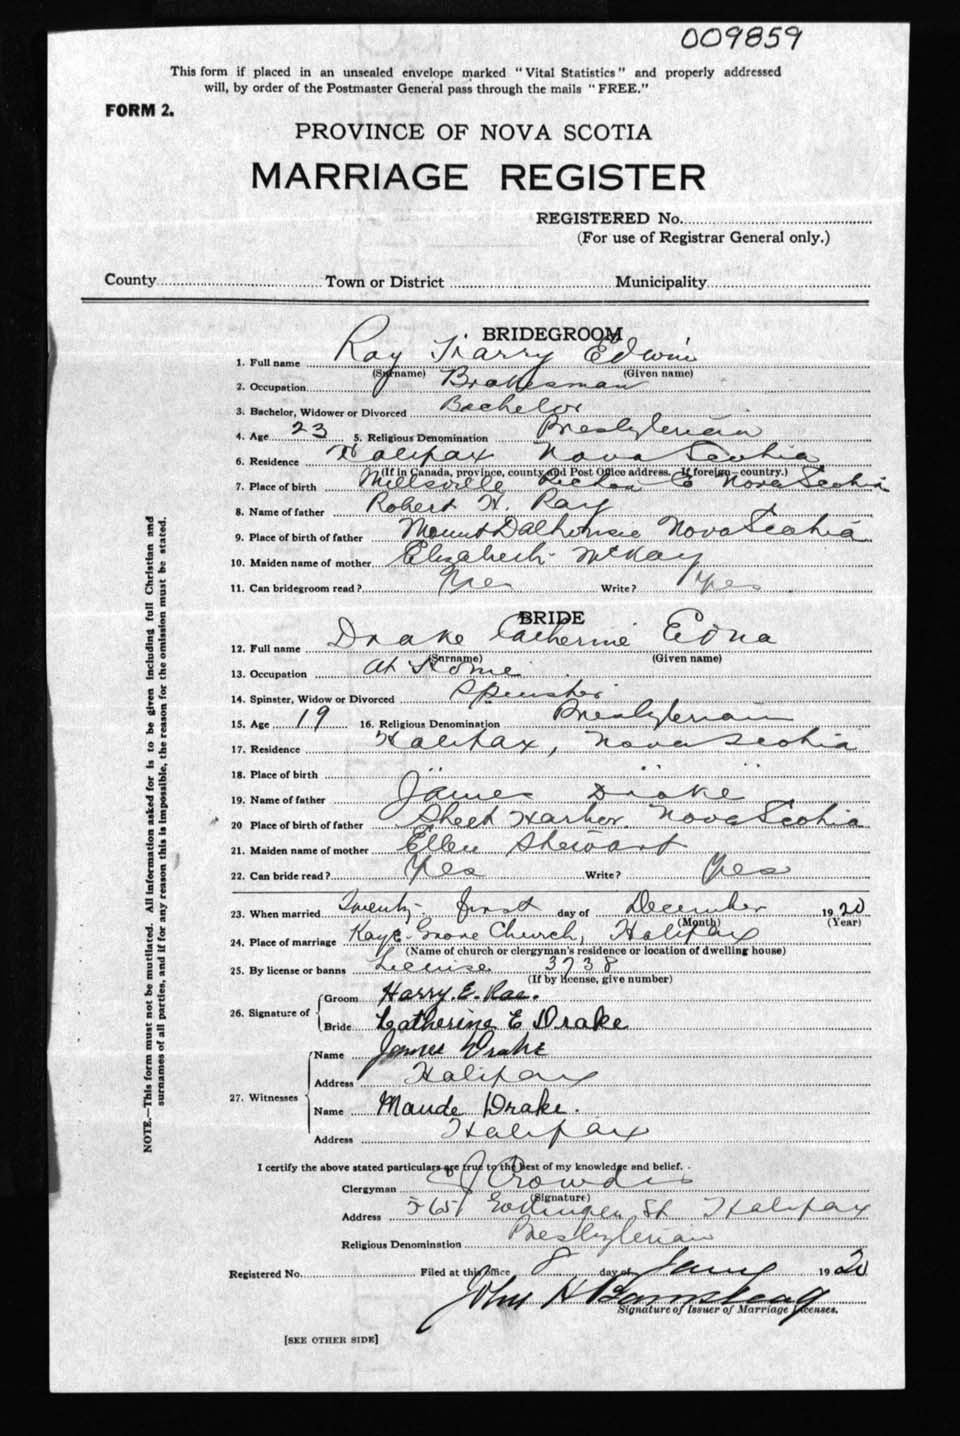 009859
This form if placed in an unsealed envelope marked "Vital Statistics" and properly addressed
will, by order of the Postmaster General pass through the mails "FREE."
FORM 2.
PROVINCE OF NOVA SCOTIA
MARRIAGE REGISTER
REGISTERED No.
(For use of Registrar General only.)
County Town or District Municipality
BRIDEGROOM
1. Full name Ray Harry Edwin
(Surname) (Given name)
2. Occupation Brakesman
3. Bachelor, Widower or Divorced Bachelor
4. Age 23 5. Religious Denomination Presbyterian
6. Residence Halifax Nova Scotia
(If in Canada, province, county and Post Office address. If foreign—country.)
7. Place of birth Millsville Pictou Nova Scotia
8. Name of father Robert H. Ray
9. Place of birth of father Mount Dalhousie Nova Scotia
10. Maiden name of mother Elizabeth McKay
11. Can bridegroom read? Yes Write? Yes
BRIDE
12. Full name Drake Catherine Edna
(Surname) (Given name)
13. Occupation At Home
14. Spinster, Widow or Divorced Spinster
15. Age 19 16. Religious Denomination Presbyterian
17. Residence Halifax, Nova Scotia
18. Place of birth " " "
19. Name of father James Drake
20 Place of birth of father Sheet Harbor Nova Scotia
21. Maiden name of mother Ellen Stewart
22. Can bride read? Yes Write? Yes
23. When married Twenty first day of December 1920
(Month) (Year)
24. Place of marriage Kaye Grove Church, Halifax
(Name of church or clergyman's residence or location of dwelling house)
25. By license or banns License 3738
(If by license, give number)
26. Signature of Groom Harry. E. Rae.
Bride Catherine E Drake
27. Witnesses Name James Drake
Address Halifax
Name Maude Drake.
Address Halifax
I certify the above stated particulars are true to the best of my knowledge and belief.
Clergyman Crowdis
(Signature)
Address Gottingen St Halifax
Religious Denomination Presbyterian
Registered No. Filed at this office 8 day of Jany 1920
John H Barnstead
Signature of Issuer of Marriage Licenses.
[SEE OTHER SIDE]
NOTE.—This form must not be mutilated. All information asked for is to be given including full Christian and
surnames of all parties, and if for any reason this is impossible, the reason for the omission must be stated.